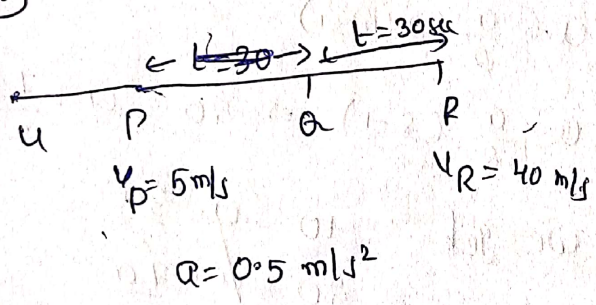 t=30sec
u P Q R
V_P = 5m/s V_R = 40 m/s
a = 0.5 m/s²